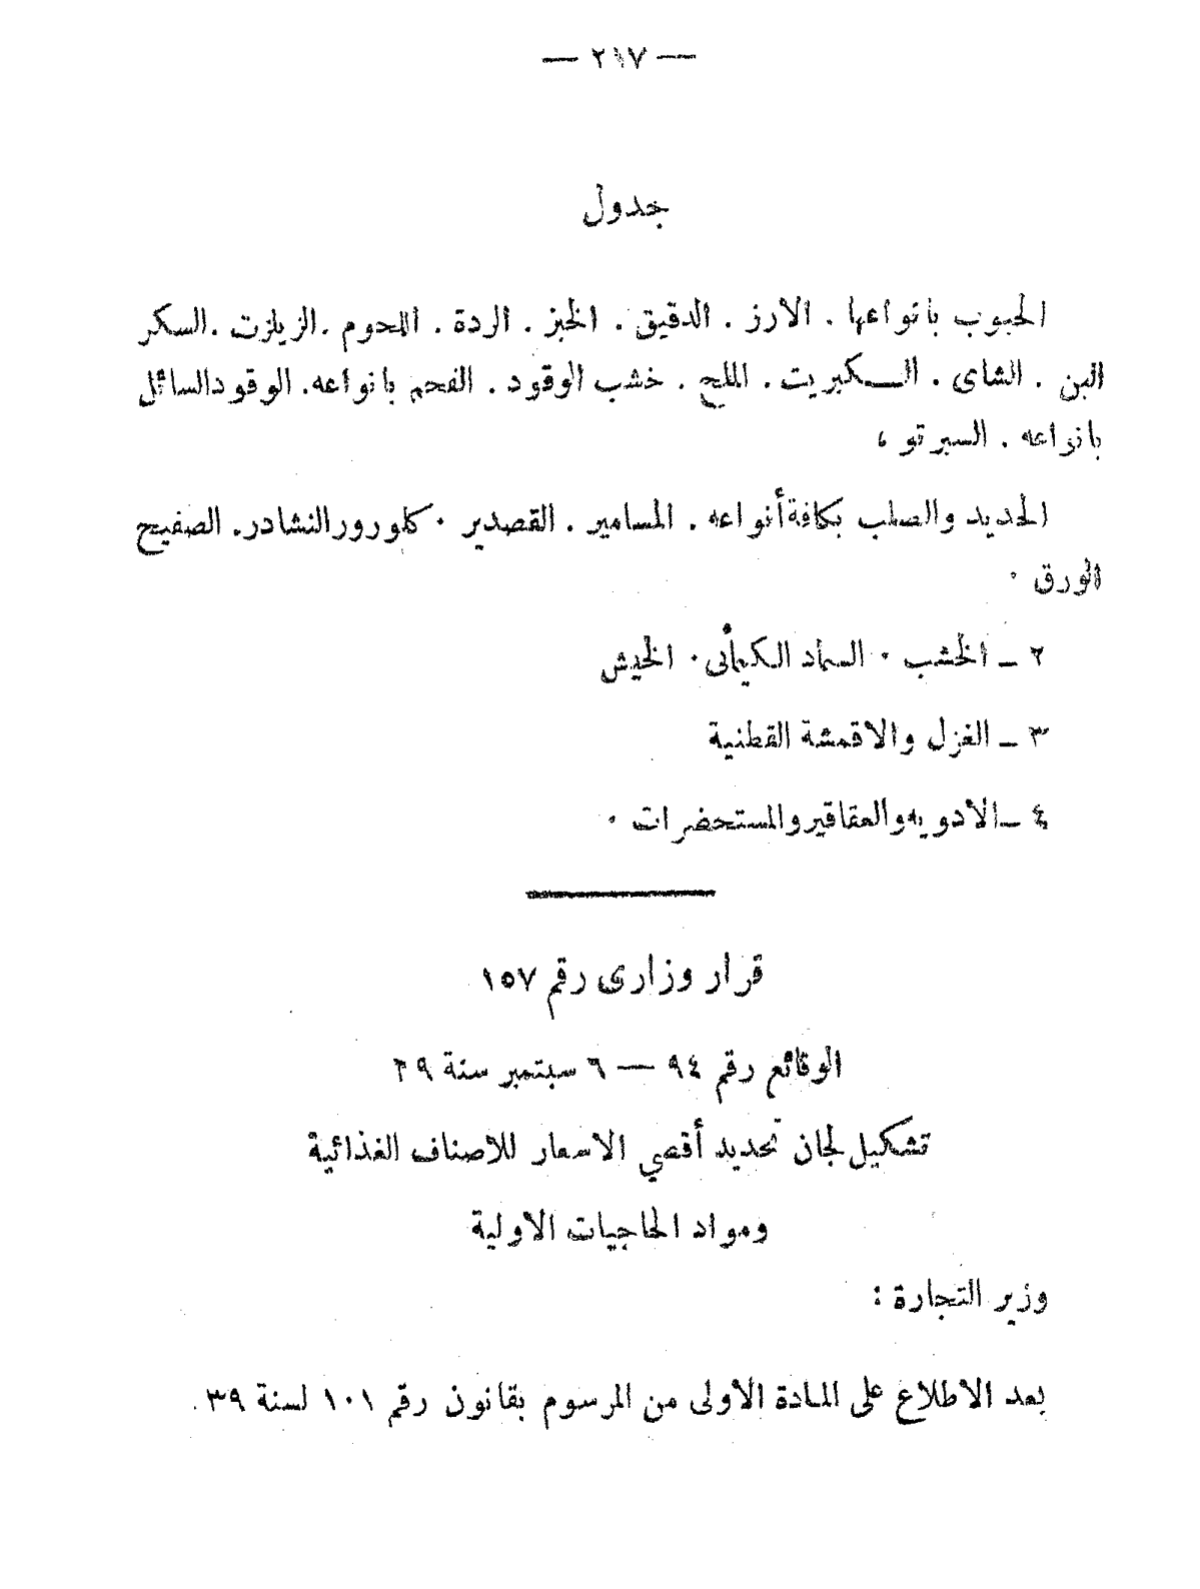 — ٢١٧ —
جدول
الحبوب بانواعها . الارز . الدقيق . الخبز . الردة . اللحوم . الزيلزت . السكر
البن . الشاى . الكبريت . الملح . خشب الوقود . الفحم بانواعه . الوقود السائل
بانواعه . السبرتو ،
الحديد والصلب بكافة أنواعه . المسامير . القصدير . كلورور النشادر . الصفيح
الورق .
٢ ــ الخشب . السماد الكيمأئى . الخيش
٣ ــ الغزل والاقمشة القطنية
٤ ــ الادويه والعقاقير والمستحضرات .
قرار وزارى رقم ١٥٧
الوقائع رقم ٩٤ — ٦ سبتمبر سنة ٣٩
تشكيل لجان تحديد أقصي الاسعار للاصناف الغذائية
ومواد الحاجيات الاولية
وزير التجارة :
بعد الاطلاع على المادة الأولى من المرسوم بقانون رقم ١٠١ لسنة ٣٩ .